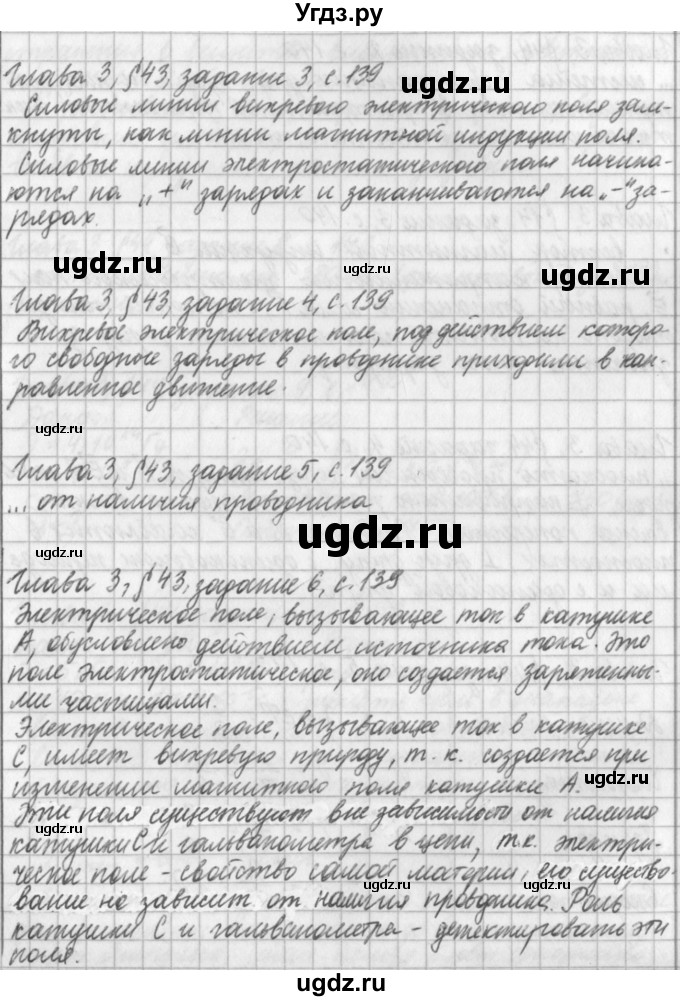 Угдз.ру
Глава 3, §43, задание 3, с.139
ugdz.ru
Силовые линии вихревого электрического поля зам-
кнуты, как линии магнитной индукции поля.
ugdz.ru
Силовые линии электростатического поля начина-
ются на „+" зарядах и заканчиваются на „-" за-
рядах.
ugdz.ru
ugdz.ru
Глава 3, §43, задание 4, с.139
Вихревое электрическое поле, под действием которо-
го свободные заряды в проводнике приходили в нап-
равленное движение.
ugdz.ru
ugdz.ru
Глава 3, §43, задание 5, с.139
... от наличия проводника
ugdz.ru
Глава 3, §43, задание 6, с.139
Электрическое поле, вызывающее ток в катушке
А, обусловлено действием источника тока. Это
поле электростатическое, оно создается заряженны-
ми частицами.
Электрическое поле, вызывающее ток в катушке
С, имеет вихревую природу, т.к. создается при
изменении магнитного поля катушки А.
ugdz.ru
Эти поля существуют вне зависимости от наличия
ugdz.ru
катушки С и гальванометра в цепи, т.к. электри-
ческое поле - свойство самой материи, его существо-
ugdz.ru
вание не зависит от наличия проводника. Роль
катушки С и гальванометра - детектировать эти
поля.
ugdz.ru